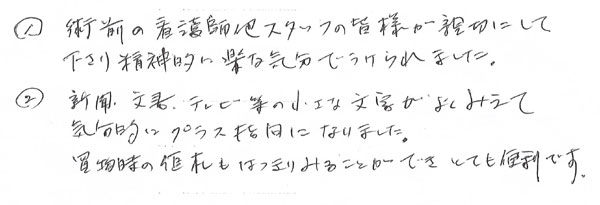 ① 術前の看護師他スタッフの皆様が親切にして
下さり精神的に楽な気分でうけられました。
② 新聞、文書、テレビ等の小さな文字がよくみえて
気分的にプラス指向になりました。
買物時の値札もはっきりみることができとても便利です。